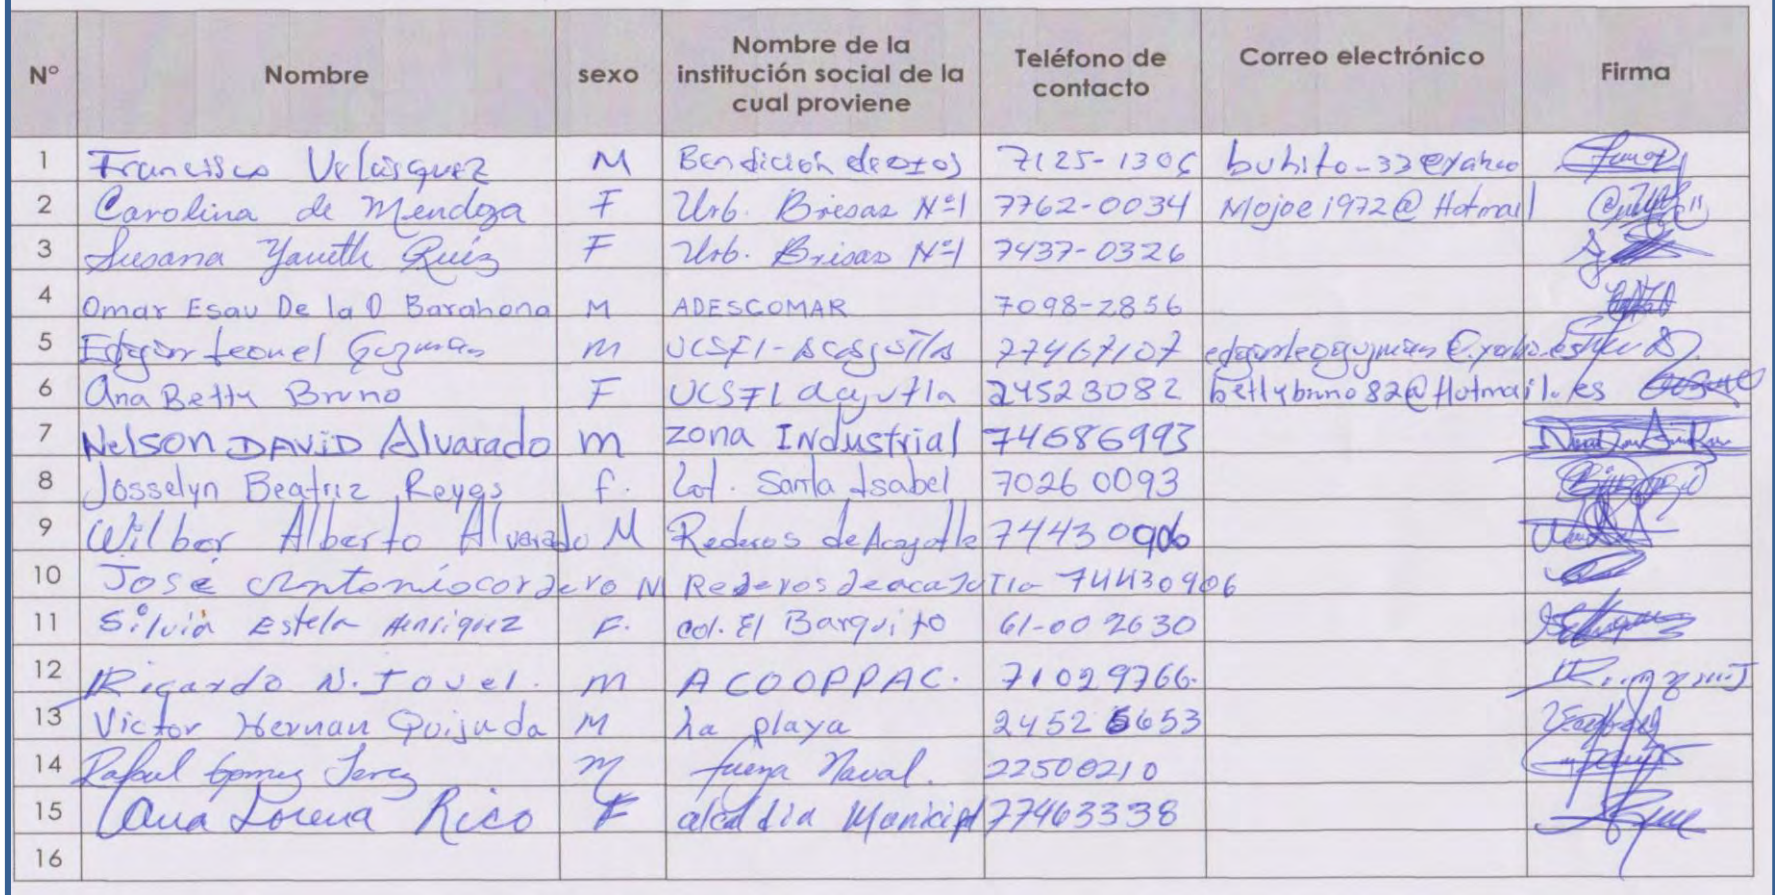 N° Nombre sexo Nombre de la institución social de la cual proviene Teléfono de contacto Correo electrónico Firma
1 Francisco Velásquez M Bendición de Dios 7125-1306 buhito_33@yahoo
2 Carolina de Mendoza F Urb. Brisas N°1 7762-0034 Mojoe1972@Hotmail
3 Susana Yaneth Ruíz F Urb. Brisas N°1 7437-0326
4 Omar Esau De la O Barahona M ADESCOMAR 7098-2856
5 Edgar Leonel Guzman m UCSFI- 77467107
6 Ana Betty Bruno F UCSFI acajutla 24523082 bettybruno82@Hotmail.es
7 Nelson DAVID Alvarado m zona Industrial 74686993
8 Josselyn Beatriz Reyes f. Lot. Santa Isabel 70260093
9 Wilber Alberto Alvarado M Rederos de Acajutla 74430906
10 José Antonio cordero M Rederos de acaJuTla 74430906
11 Silvia Estela Henriquez F. col. El Barquito 61-002630
12 Ricardo N. Jovel. m ACOOPPAC. 71029766.
13 Victor Hernan Quijada M La playa 2452 5653
14 Rafael Gomez m fuerza Naval. 22500210
15 Ana Lorena Rico F alcaldia Municipl 77463338
16